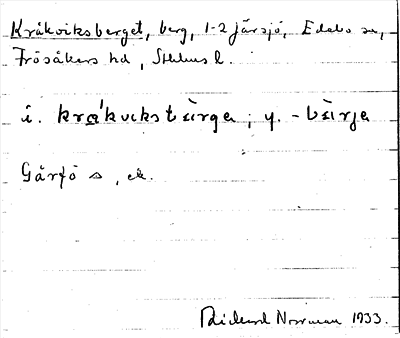 Kråkviksberget, berg, 1-2 Järsjö, Edebo sn,
Frösåkers hd, Sthlms l.
i. krå'kvıksbärge, y. -bärje
Gårfö s, ek.
Rickard Norrman 1933.